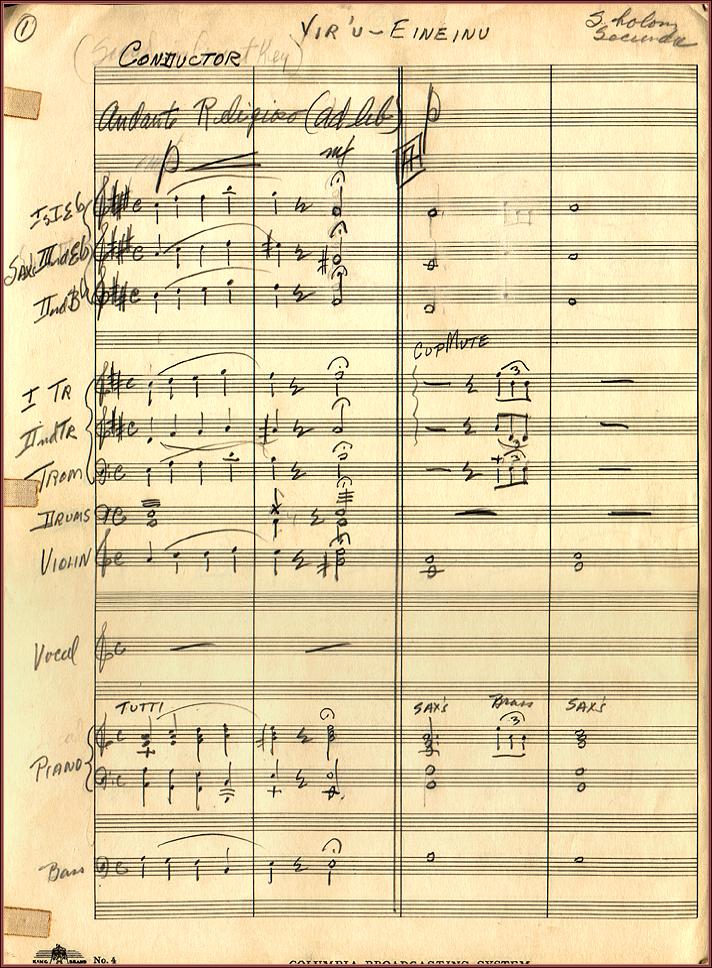 1
YIR'U-EINEINU
Sholom
Secunda
CONDUCTOR
Andante Religioso (ad lib)
p
mf
A
I st Eb
SAX. III nd Eb
II nd Bb
CUP MUTE
I TR
II nd TR
TROM
3
3
3
DRUMS
VIOLIN
Vocal
TUTTI
SAX'S
Brass
SAX'S
3
PIANO
Bass
KING BRAND No. 4
COLUMBIA BROADCASTING SYSTEM